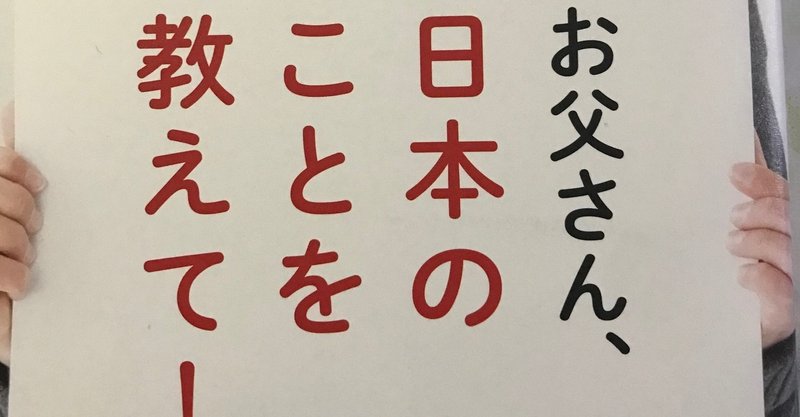 お父さん、
日本の
ことを
教えて!